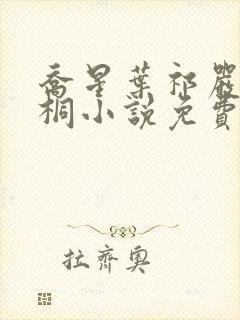 喬星葉祁嚴
桐小說免費
拉齊奧